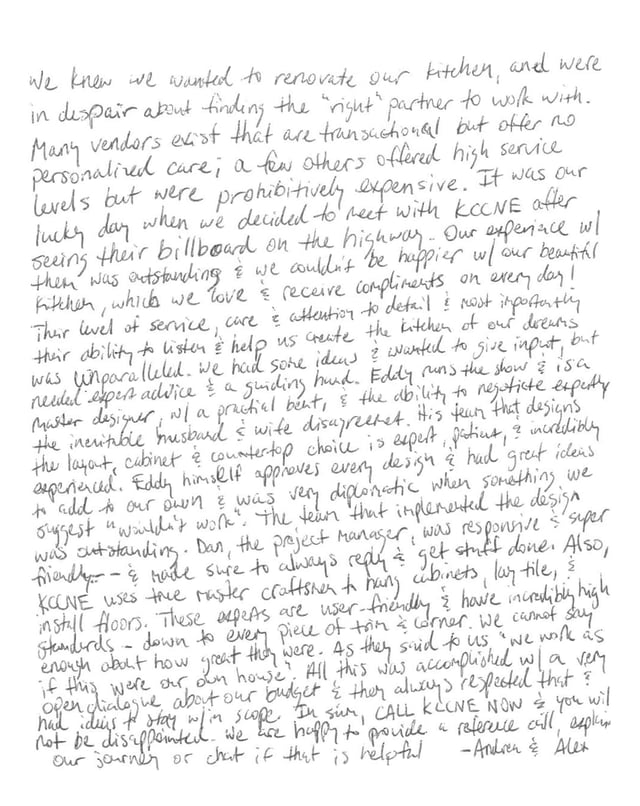 We knew we wanted to renovate our kitchen, and were
in despair about finding the "right" partner to work with.
Many vendors exist that are transactional but offer no
personalized care; a few others offered high service
levels but were prohibitively expensive. It was our
lucky day when we decided to meet with KCCNE after
seeing their billboard on the highway. Our experience w/
them was outstanding & we couldn't be happier w/ our beautiful
kitchen, which we love & receive compliments on every day!
Their level of service, care & attention to detail & most importantly
their ability to listen & help us create the kitchen of our dreams
was unparalleled. We had some ideas & wanted to give input, but
needed expert advice & a guiding hand. Eddy runs the show & is a
master designer, w/ a practial bent, & the ability to negotiate expertly
the inevitable husband & wife disagreemet. His team that designs
the layout, cabinet & countertop choice is expert, patient, & incredibly
experienced. Eddy himself approves every design & had great ideas
to add to our own & was very diplomatic when something we
suggest "wouldn't work". The team that implemented the design
was outstanding. Dan, the project manager, was responsive & super
friendly -- & made sure to always reply & get stuff done. Also,
KCCNE uses true master craftsmen to hang cabinets, lay tile, &
install floors. These experts are user-friendly & have incredibly high
standards - down to every piece of trim & corner. We cannot say
enough about how great they were. As they said to us "we work as
if this were our own house". All this was accomplished w/ a very
open dialogue about our budget & they always respected that &
had ideas to stay w/in scope. In sum, CALL KCCNE NOW & you will
not be disappointed. We are happy to provide a reference call, explain
our journey or chat if that is helpful -Andrea & Alex